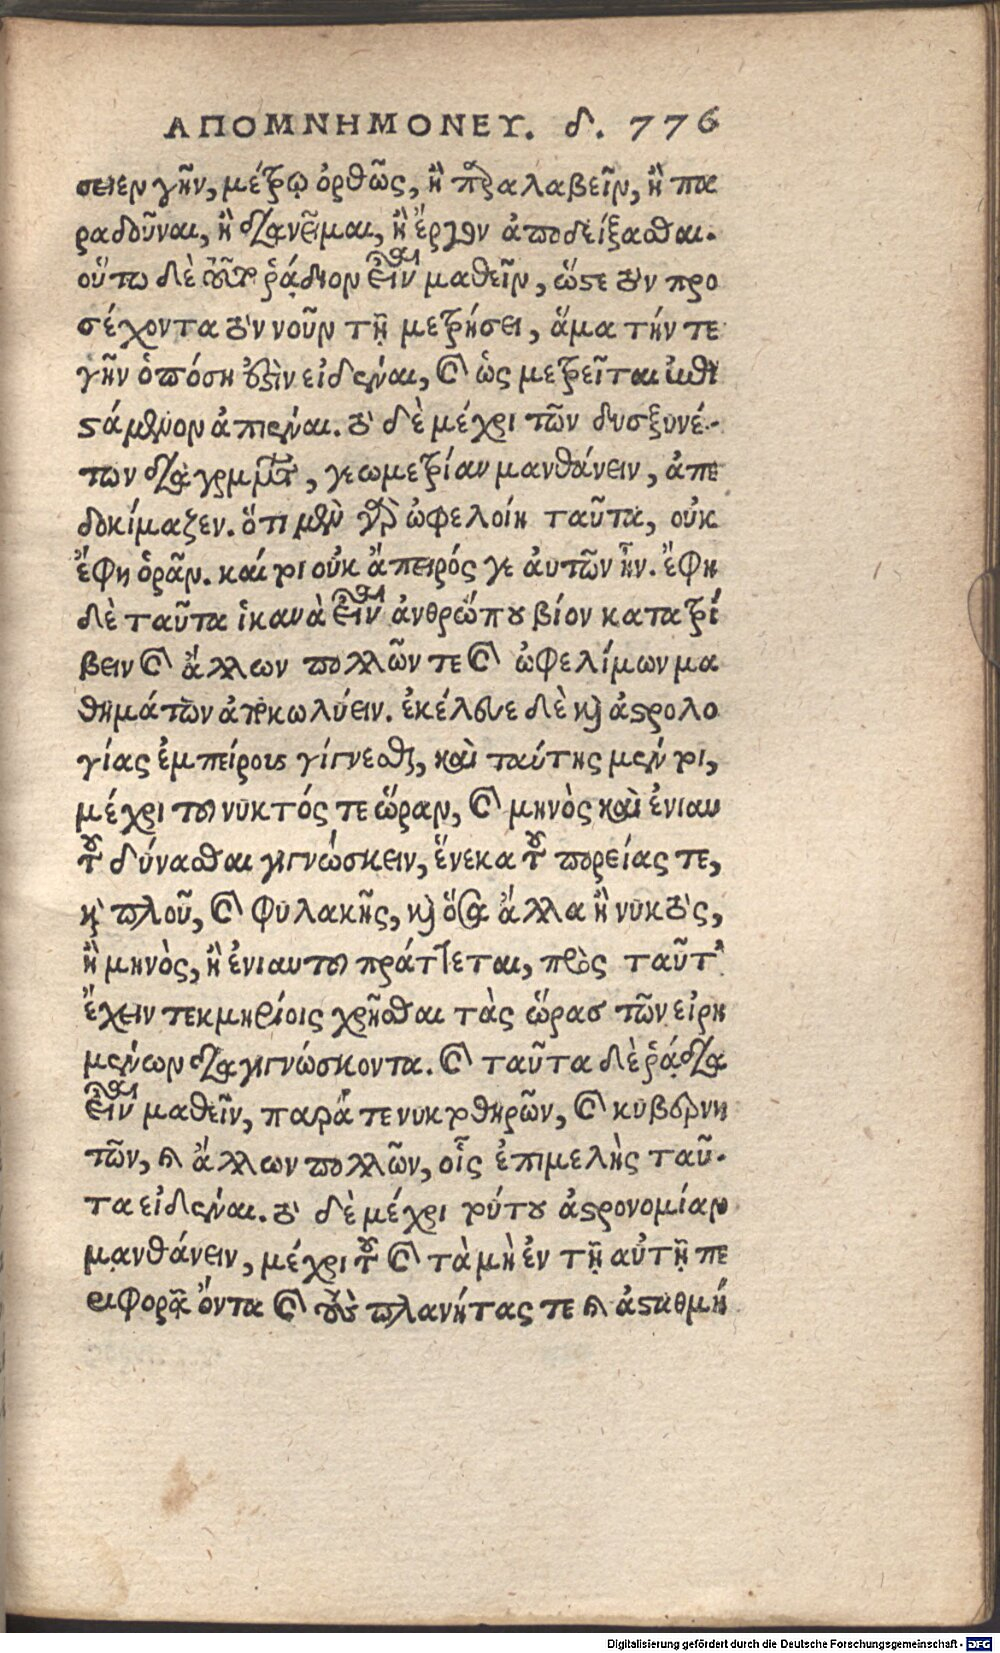 ΑΠΟΜΝΗΜΟΝΕΥ. δ. 776
σειεν γῆν, μέτρῳ ὀρθῶς, ἢ παραλαβεῖν, ἢ πα
ραδοῦναι, ἢ διανεῖμαι, ἢ ἔργον ἀποδείξασθαι.
οὕτω δὲ τοῦτο ῥᾴδιον εἶναι μαθεῖν, ὥστε τὸν προ
σέχοντα τὸν νοῦν τῇ μετρήσει, ἅμα τήν τε
γῆν ὁπόση ἐστὶν εἰδέναι, καὶ ὡς μετρεῖται ἐπι
στάμενον ἀπιέναι. τὸ δὲ μέχρι τῶν δυσξυνέ-
των διαγραμμάτων, γεωμετρίαν μανθάνειν, ἀπε
δοκίμαζεν. ὅτι μὲν γὰρ ὠφελοίη ταῦτα, οὐκ
ἔφη ὁρᾶν. καί τοι οὐκ ἄπειρός γε αὐτῶν ἦν. ἔφη
δὲ ταῦτα ἱκανὰ εἶναι ἀνθρώπου βίον κατατρί
βειν καὶ ἄλλων πολλῶν τε καὶ ὠφελίμων μα
θημάτων ἀποκωλύειν. ἐκέλευε δὲ καὶ ἀστρολο
γίας ἐμπείρους γίγνεσθαι, καὶ ταύτης μέν τοι,
μέχρι τοῦ νυκτός τε ὥραν, καὶ μηνὸς καὶ ἐνιαυ
τοῦ δύνασθαι γιγνώσκειν, ἕνεκα τοῦ πορείας τε,
καὶ πλοῦ, καὶ φυλακῆς, καὶ ὅσα ἄλλα ἢ νυκτὸς,
ἢ μηνὸς, ἢ ἐνιαυτοῦ πράττεται, πρὸς ταῦτ'
ἔχειν τεκμηρίοις χρῆσθαι τὰς ὥρασ τῶν εἰρη
μένων διαγιγνώσκοντα. καὶ ταῦτα δὲ ῥᾴδια
εἶναι μαθεῖν, παρά τε νυκτοθηρῶν, καὶ κυβερνη
τῶν, καὶ ἄλλων πολλῶν, οἷς ἐπιμελὴς ταῦ-
τα εἰδέναι. τὸ δὲ μέχρι τούτου ἀστρονομίαν
μανθάνειν, μέχρι τοῦ καὶ τὰ μὴ ἐν τῇ αὐτῇ πε
ριφορᾷ ὄντα καὶ τοὺς πλανήτας τε καὶ ἀσταθμή
Digitalisierung gefördert durch die Deutsche Forschungsgemeinschaft - DFG